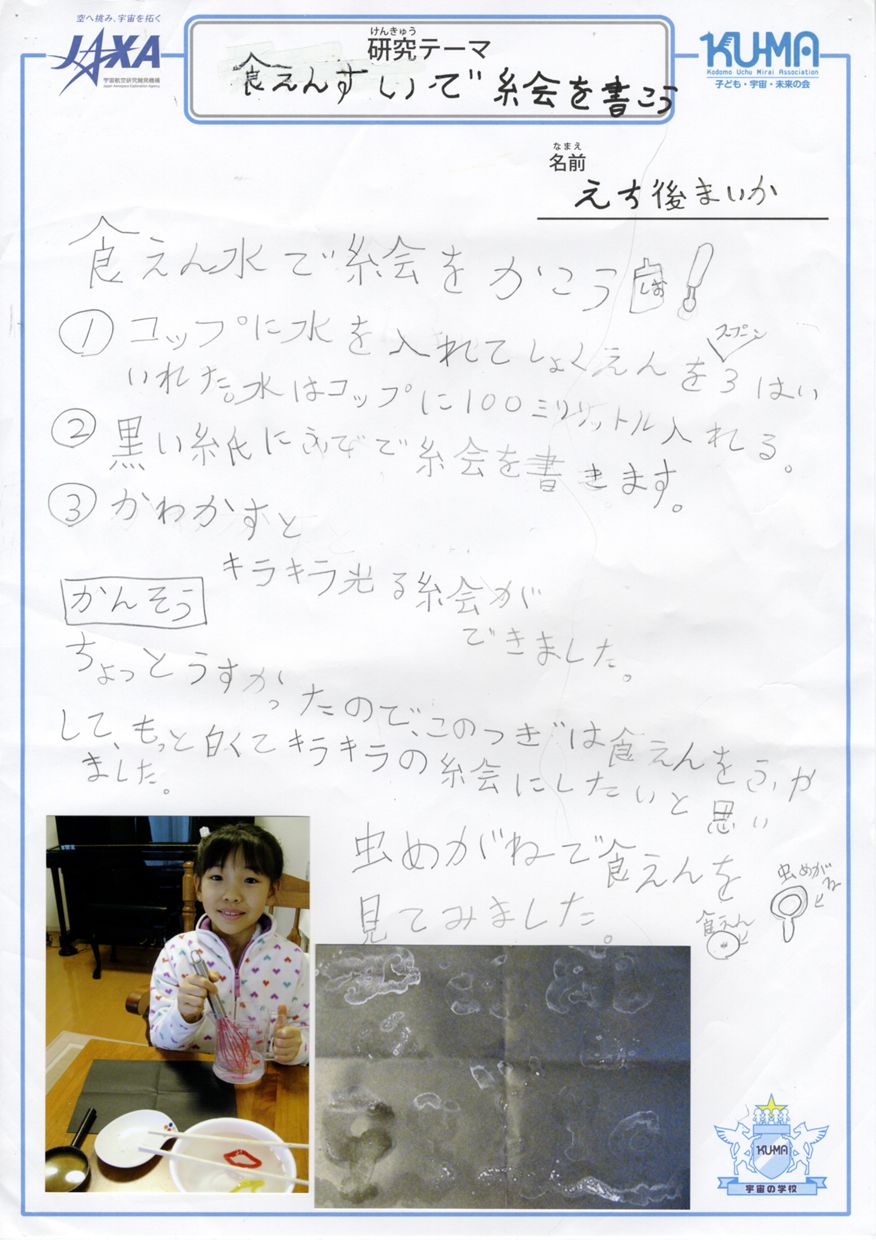 空へ挑み、宇宙を拓く
JAXA
宇宙航空研究開発機構
Japan Aerospace Exploration Agency
けんきゅう
研究テーマ
食えんすいで絵を書こう
KU-MA
Kodomo Uchu Mirai Association
子ども・宇宙・未来の会
なまえ
名前
えち後まいか
食えん水で絵をかこう
しお
① コップに水を入れてしょくえんを3ばい
スプーン
いれた。水はコップに100ミリリットル入れる。
② 黒い紙にふでで絵を書きます。
③ かわかすと
キラキラ光る絵が
できました。
かんそう
ちょっとうすかったので、このつぎは食えんをふやか
して、もっと白くてキラキラの絵にしたいと思い
ました。
虫めがねで食えんを
見てみました。
虫めがね
食えん
KU-MA
宇宙の学校